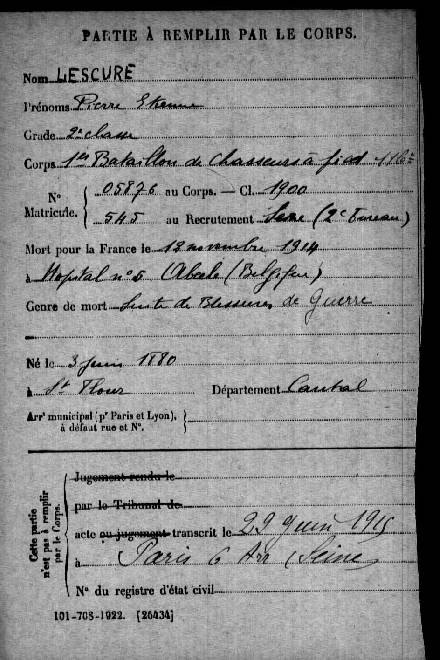 PARTIE À REMPLIR PAR LE CORPS.
Nom LESCURE
Prénoms Pierre Etienne
Grade 2e classe
Corps 1er Bataillon de Chasseurs à pied
N° Matricule. { 05876 au Corps. — Cl. 1900
545 au Recrutement Seine (2e Bureau)
Mort pour la France le 13 novembre 1914
à Hopital n°5 Abeele (Belgique)
Genre de mort Suite de Blessures de Guerre
Né le 3 Juin 1880
à St Flour Département Cantal
Arrt municipal (pr Paris et Lyon), à défaut rue et N°.
Cette partie n'est pas à remplir par le Corps.
Jugement rendu le
par le Tribunal de
acte ou jugement transcrit le 29 Juin 1915
à Paris 6 Arr (Seine)
N° du registre d'état civil
101-708-1922. [26434]